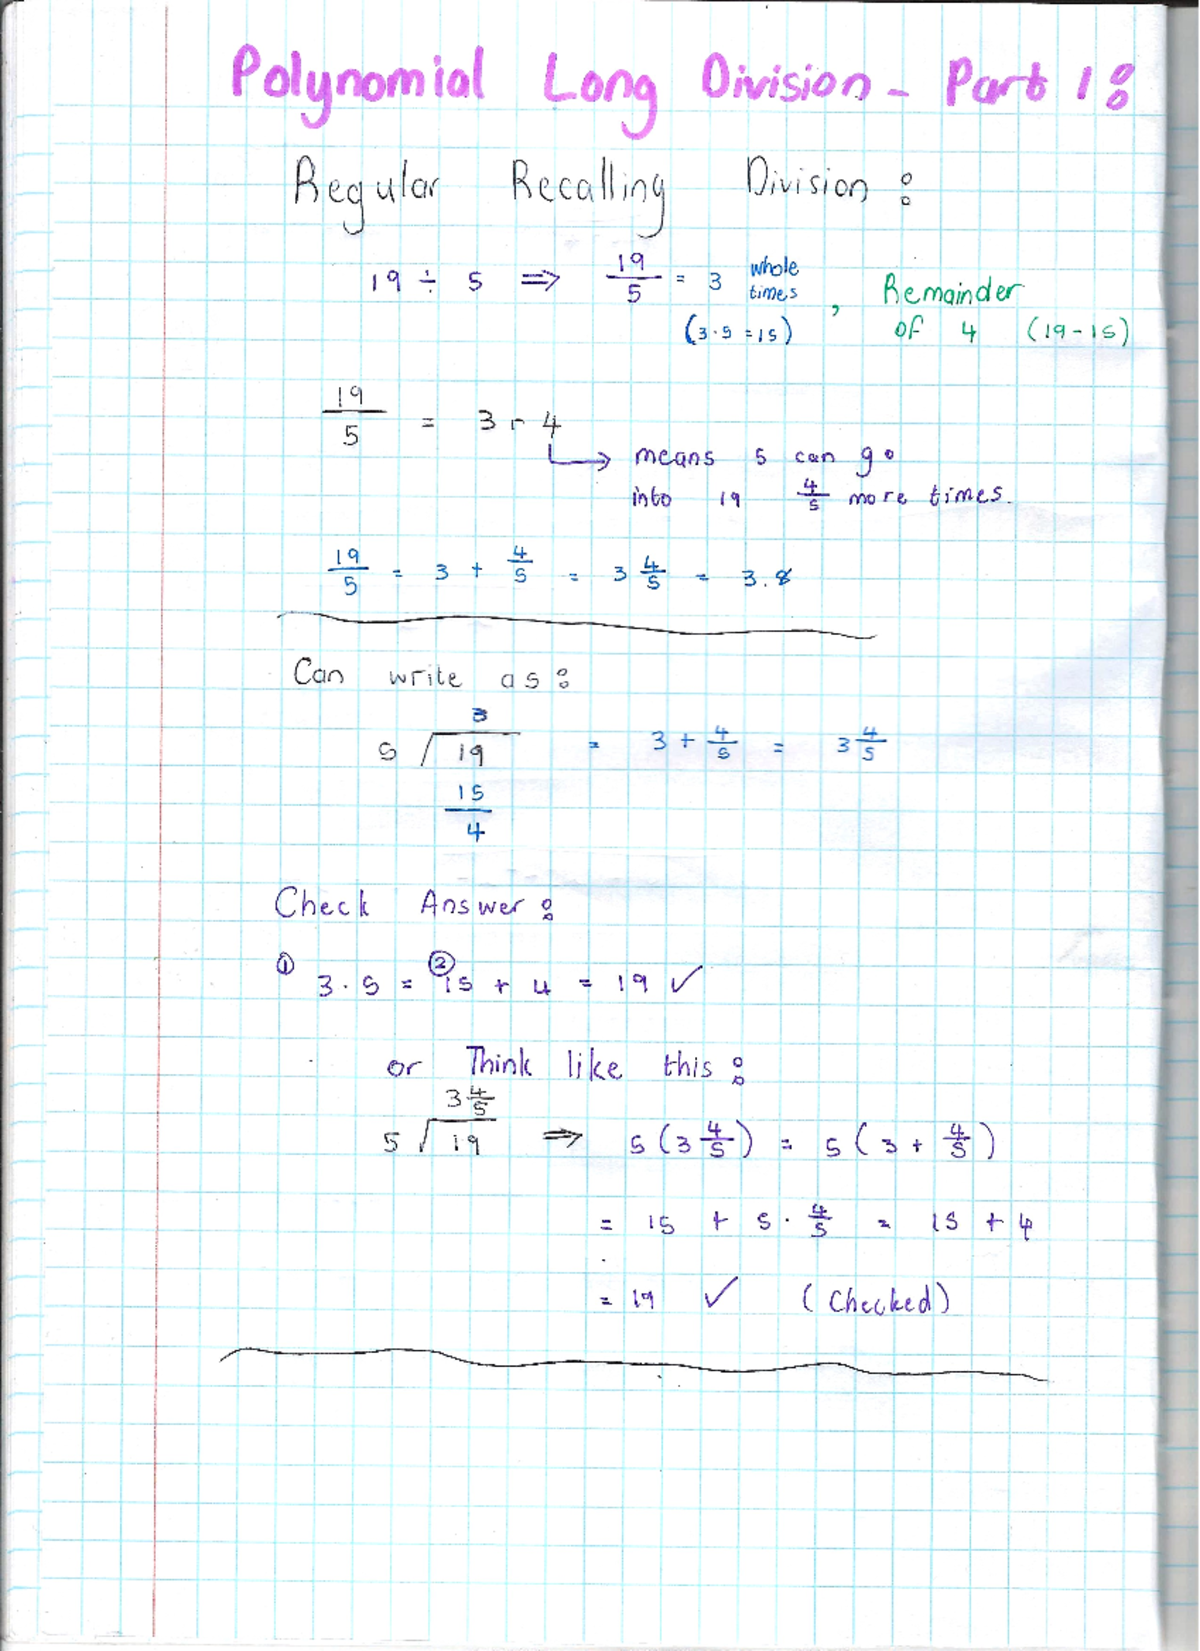 Polynomial Long Division - Part 1:
Regular Recalling Division:
19 ÷ 5 ⇒ 19/5 = 3 whole times (3·5 = 15), Remainder of 4 (19-15)
19/5 = 3 r 4
means 5 can go
into 19 4/5 more times.
19/5 = 3 + 4/5 = 3 4/5 = 3.8
Can write as:
3
5 / 19 = 3 + 4/5 = 3 4/5
15
4
Check Answer:
① 3·5 = ② 15 + 4 = 19 ✓
or Think like this:
3 4/5
5 / 19 ⇒ 5(3 4/5) = 5(3 + 4/5)
= 15 + 5·4/5 = 15 + 4
= 19 ✓ (Checked)